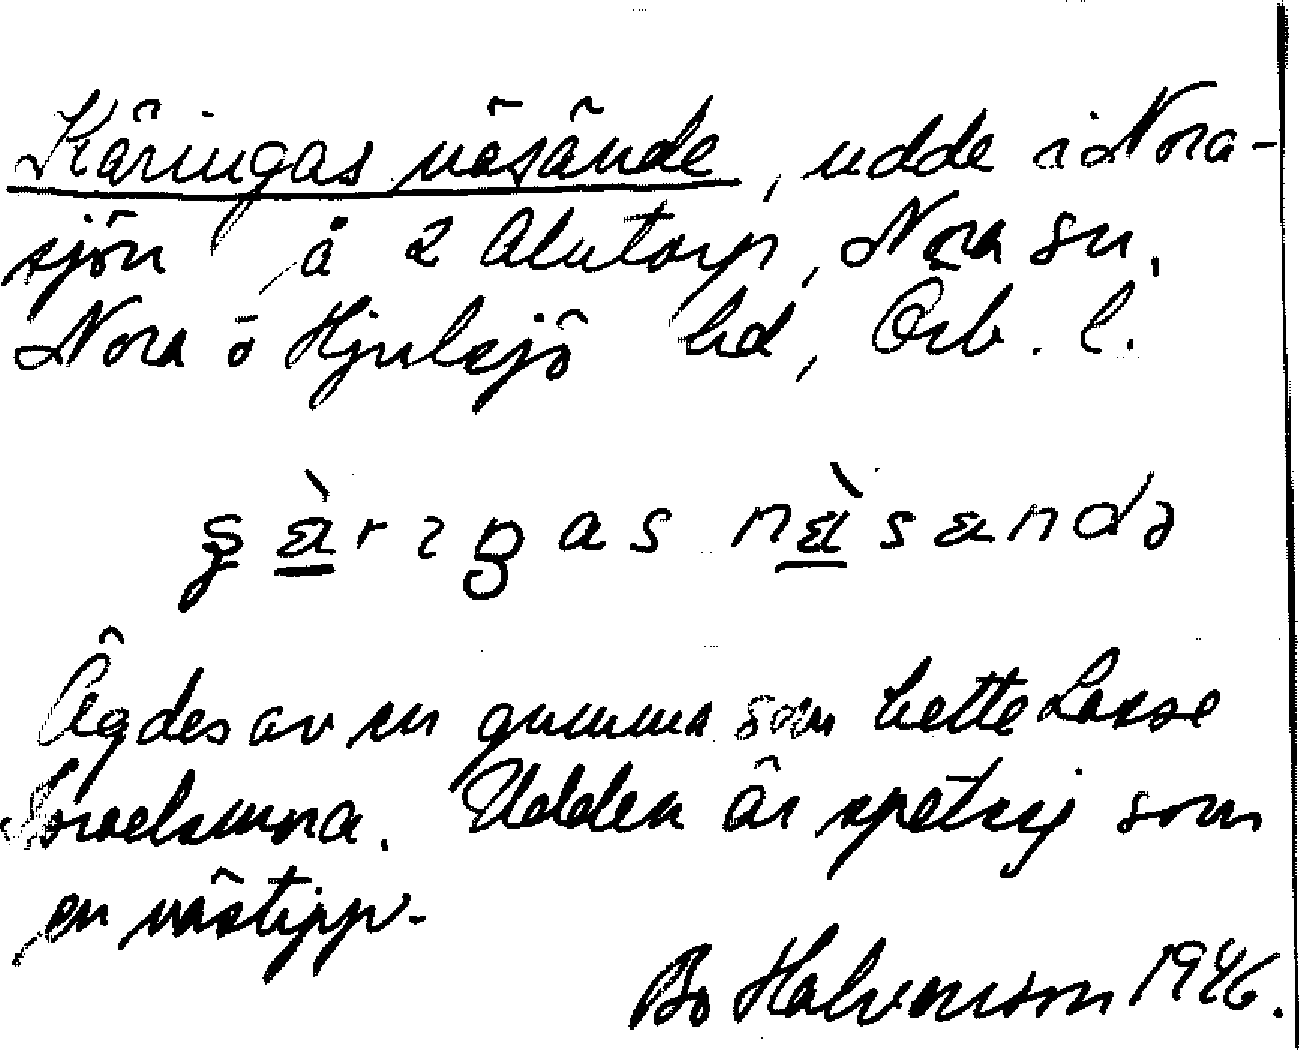 Käringas näsände, udde i Nora-
sjön å 2 Alntorp, Nora sn,
Nora o Hjulsjö hd, Örb. l.
Ägdes av en gumma som hette Lasse
Udden är spetsig som
en nästipp.
Bo Halvarsson 1946.